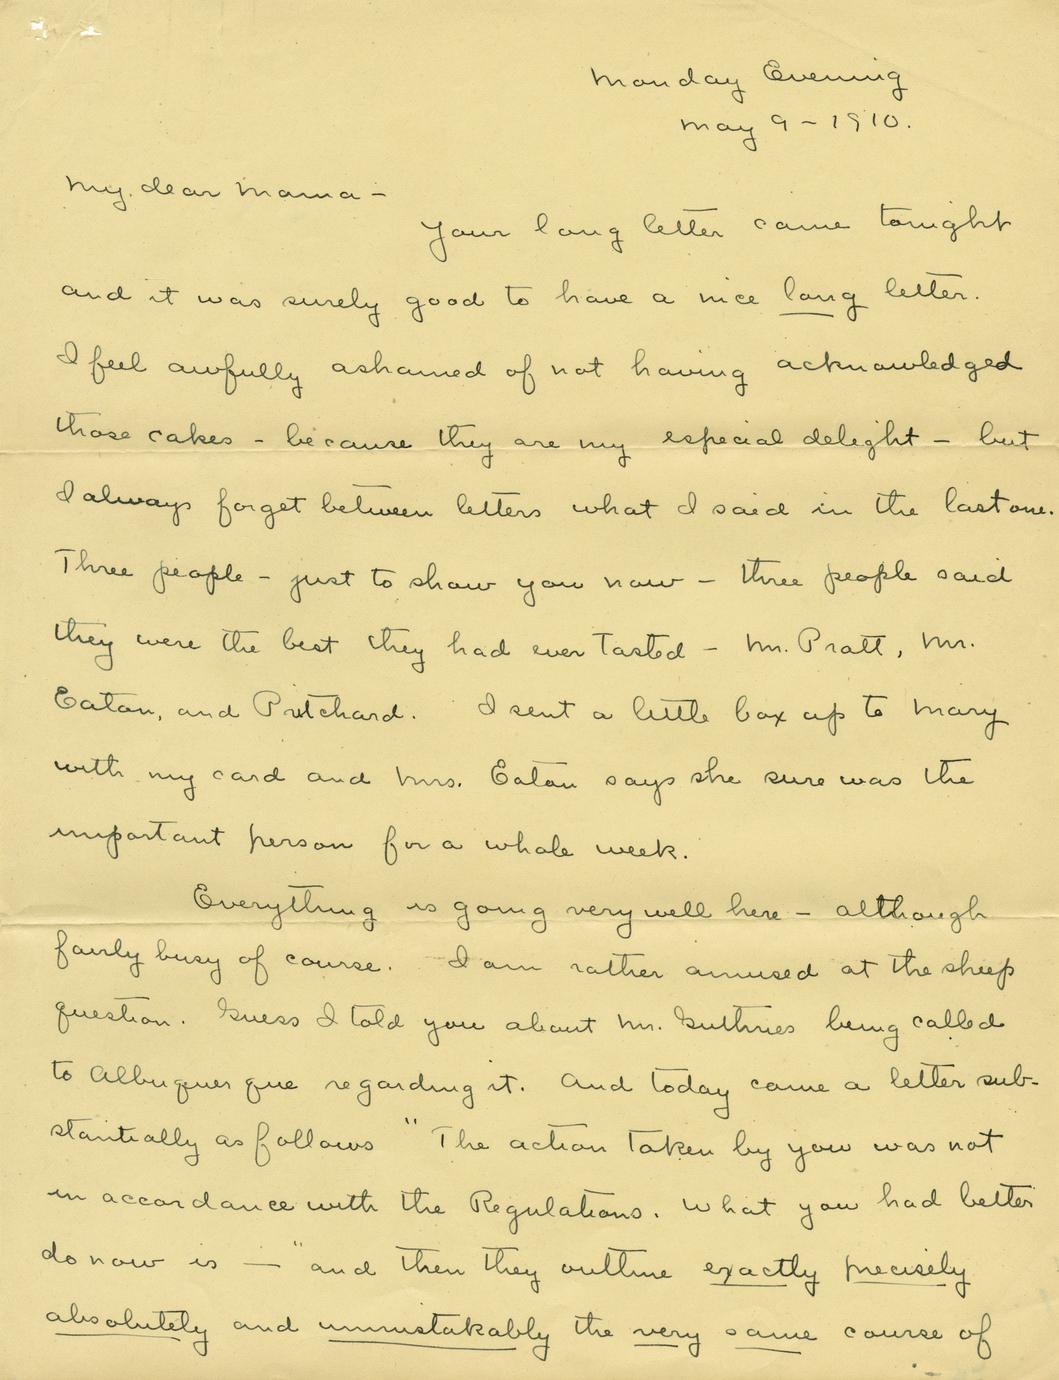 Monday Evening
May 9 - 1910.
My dear Mama -
Your long letter came tonight
and it was surely good to have a nice long letter.
I feel awfully ashamed of not having acknowledged
those cakes - because they are my especial delight - but
I always forget between letters what I said in the last one.
Three people - just to show you now - three people said
they were the best they had ever tasted - Mr. Pratt, Mr.
Eaton, and Pritchard. I sent a little box up to Mary
with my card and Mrs. Eaton says she sure was the
important person for a whole week.
Everything is going very well here - although
fairly busy of course. I am rather amused at the sheep
question. Guess I told you about Mr. Guthries being called
to Albuquerque regarding it. And today came a letter sub-
stantially as follows "The action taken by you was not
in accordance with the Regulations. What you had better
do now is —" and then they outline exactly precisely
absolutely and unmistakably the very same course of